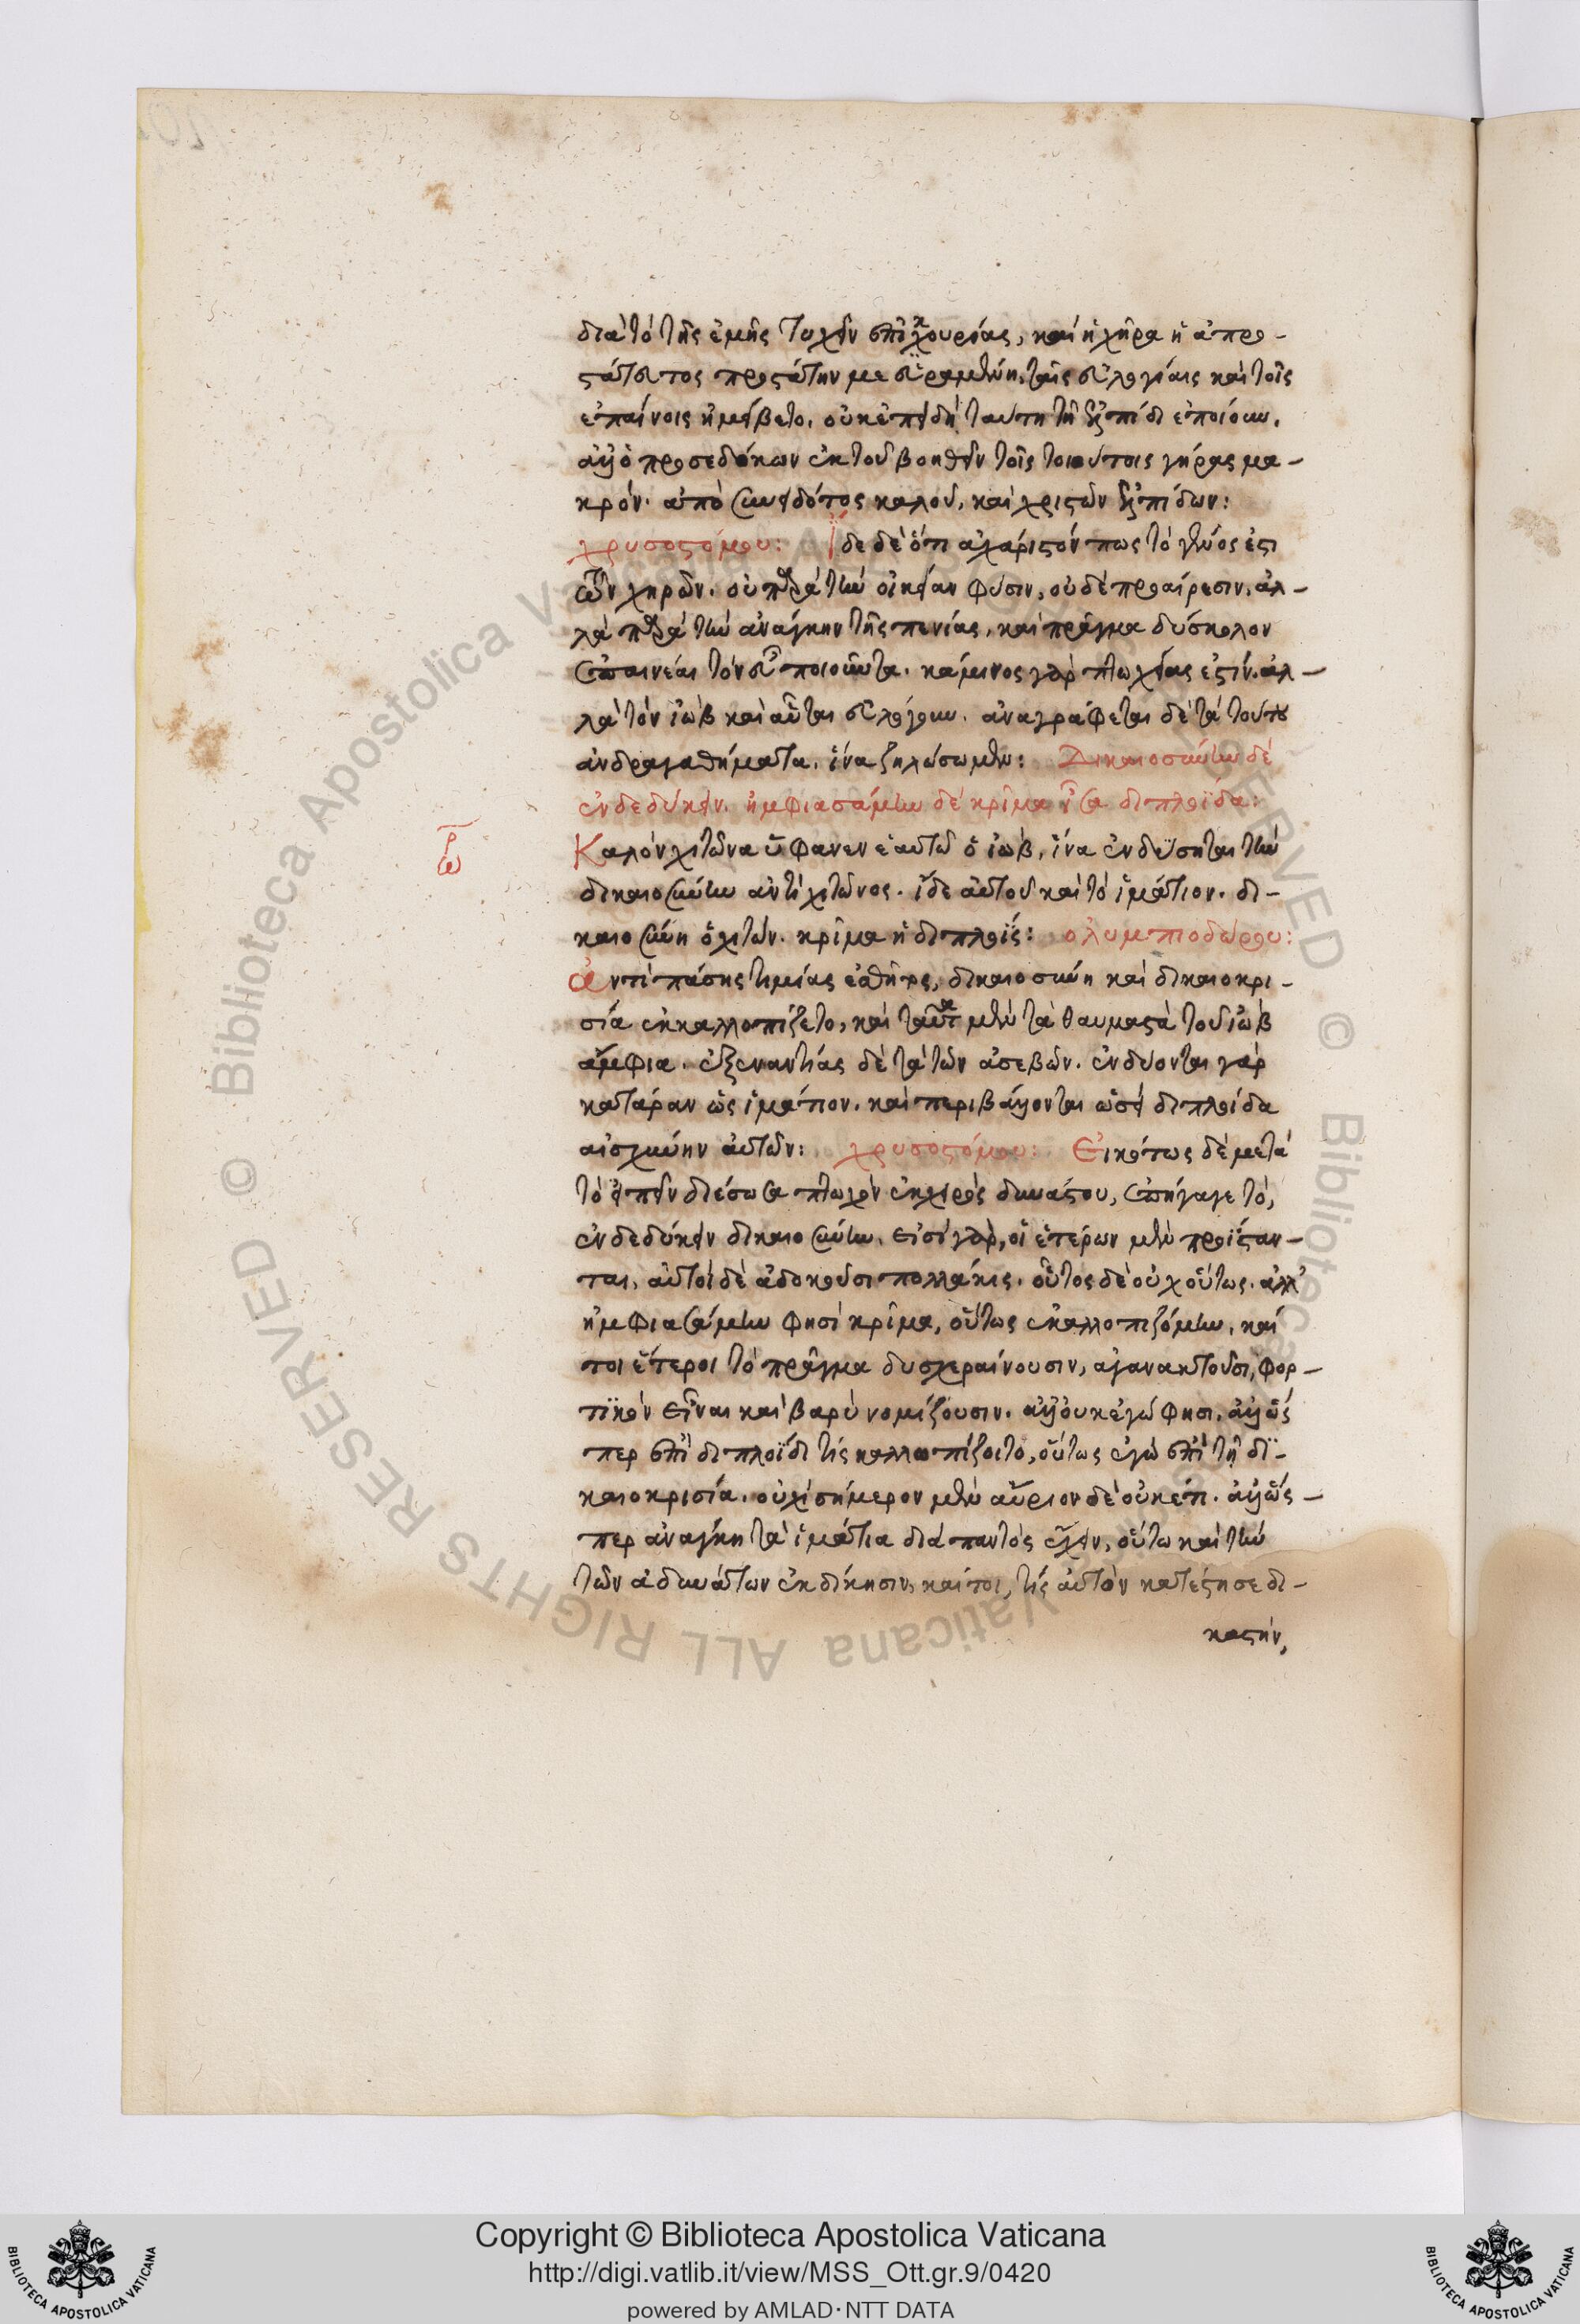 διὰ τὸ τῆς ἐμῆς τυχεῖν ἐπικουρίας, καὶ ἡ χήρα ἡ ἀπρο-
στάτευτος προστάτην με εὑραμένη, ταῖς εὐλογίαις καὶ τοῖς
ἐπαίνοις ἠμείβετο. οὐκ ἐπειδὴ ταύτη τῇ ἐλπίδι ἐποίουν.
ἀλλ' ὁ προσεδόκων ἐκ τοῦ βοηθεῖν τοῖς τοιούτοις γήρας μα-
κρόν. ἀπὸ συνειδότος καλοῦ, καὶ χριστῶν ἐλπίδων:
χρυσοστόμου: ἴδε δὲ ὅτι ἀχάριστόν πως τὸ γένος ἐστὶ
τῶν χηρῶν. οὐ παρὰ τὴν οἰκείαν φύσιν, οὐδὲ προαίρεσιν, ἀλ-
λὰ παρὰ τὴν ἀνάγκην τῆς πενίας, καὶ πρᾶγμα δύσκολον
ἐπαινέσαι τὸν εὖ ποιοῦντα. κάμινος γὰρ πτωχείας ἐστίν. ἀλ-
λὰ τὸν ἰὼβ καὶ αὗται εὐλόγουν. ἀναγράφεται δὲ τὰ τούτου
ἀνδραγαθήματα, ἵνα ζηλώσωμεν: Δικαιοσύνην δὲ
ἐνδεδύκειν. ἠμφιασάμην δὲ κρῖμα ἴσα διπλοΐδα:
Καλὸν χιτῶνα ὕφανεν ἑαυτῷ ὁ ἰώβ, ἵνα ἐνδύσηται τὴν
δικαιοσύνην ἀντὶ χιτῶνος. ἴδε αὐτοῦ καὶ τὸ ἱμάτιον. δι-
καιοσύνη ὁ χιτών. κρῖμα ἡ διπλοΐς: ολυμπιοδώρου:
Ἀντὶ πάσης τιμίας ἐσθῆτος, δικαιοσύνη καὶ δικαιοκρι-
σία ἐνεκαλλοπίζετο, καὶ ταῦτα μὲν τὰ θαυμαστὰ τοῦ ἰὼβ
ἄμφια. ἐξεναντίας δὲ τὰ τῶν ἀσεβῶν. ἐνδύονται γὰρ
κατάραν ὡς ἱμάτιον. καὶ περιβάλλονται ὡσεὶ διπλοίδα
αἰσχύνην αὐτῶν: χρυσοστόμου: Εἰκότως δὲ μετὰ
τὸ εἰπεῖν διέσωσα πτωχὸν ἐκ χειρὸς δυνάστου, ἐπήγαγε τό,
ἐνδεδύκειν δικαιοσύνην. εἰσὶ γὰρ, οἳ ἑτέρων μὲν προΐσταν-
ται, αὐτοὶ δὲ ἀδικοῦσι πολλάκις. οὗτος δὲ οὐχ οὕτως. ἀλλ'
ἠμφιασάμην φησὶ κρῖμα, οὕτως ἐκαλλοπιζόμην, καί
τοι ἕτεροι τὸ πρᾶγμα δυσχεραίνουσιν, ἀγανακτοῦσι, φορ-
τϊκὸν εἶναι καὶ βαρὺ νομίζουσιν. ἀλλ' οὐκ ἐγώ φησι. ἀλλ' ὥς
περ ἐπὶ διπλοΐδι τίς καλλωπίζοιτο, οὕτως ἐγὼ ἐπὶ τῇ δϊ-
καιοκρισία. οὐχὶ σήμερον μὲν αὔριον δὲ οὐκέτι. ἀλλ' ὥς-
περ ἀνάγκη τὰ ἱμάτια διὰ παντὸς ἔχειν, οὕτω καὶ τὴν
τῶν ἀδυνάτων ἐκδίκησιν, καί τοι, τίς αὐτὸν κατέστησε δι-
καστήν,
Copyright © Biblioteca Apostolica Vaticana
http://digi.vatlib.it/view/MSS_Ott.gr.9/0420
powered by AMLAD·NTT DATA